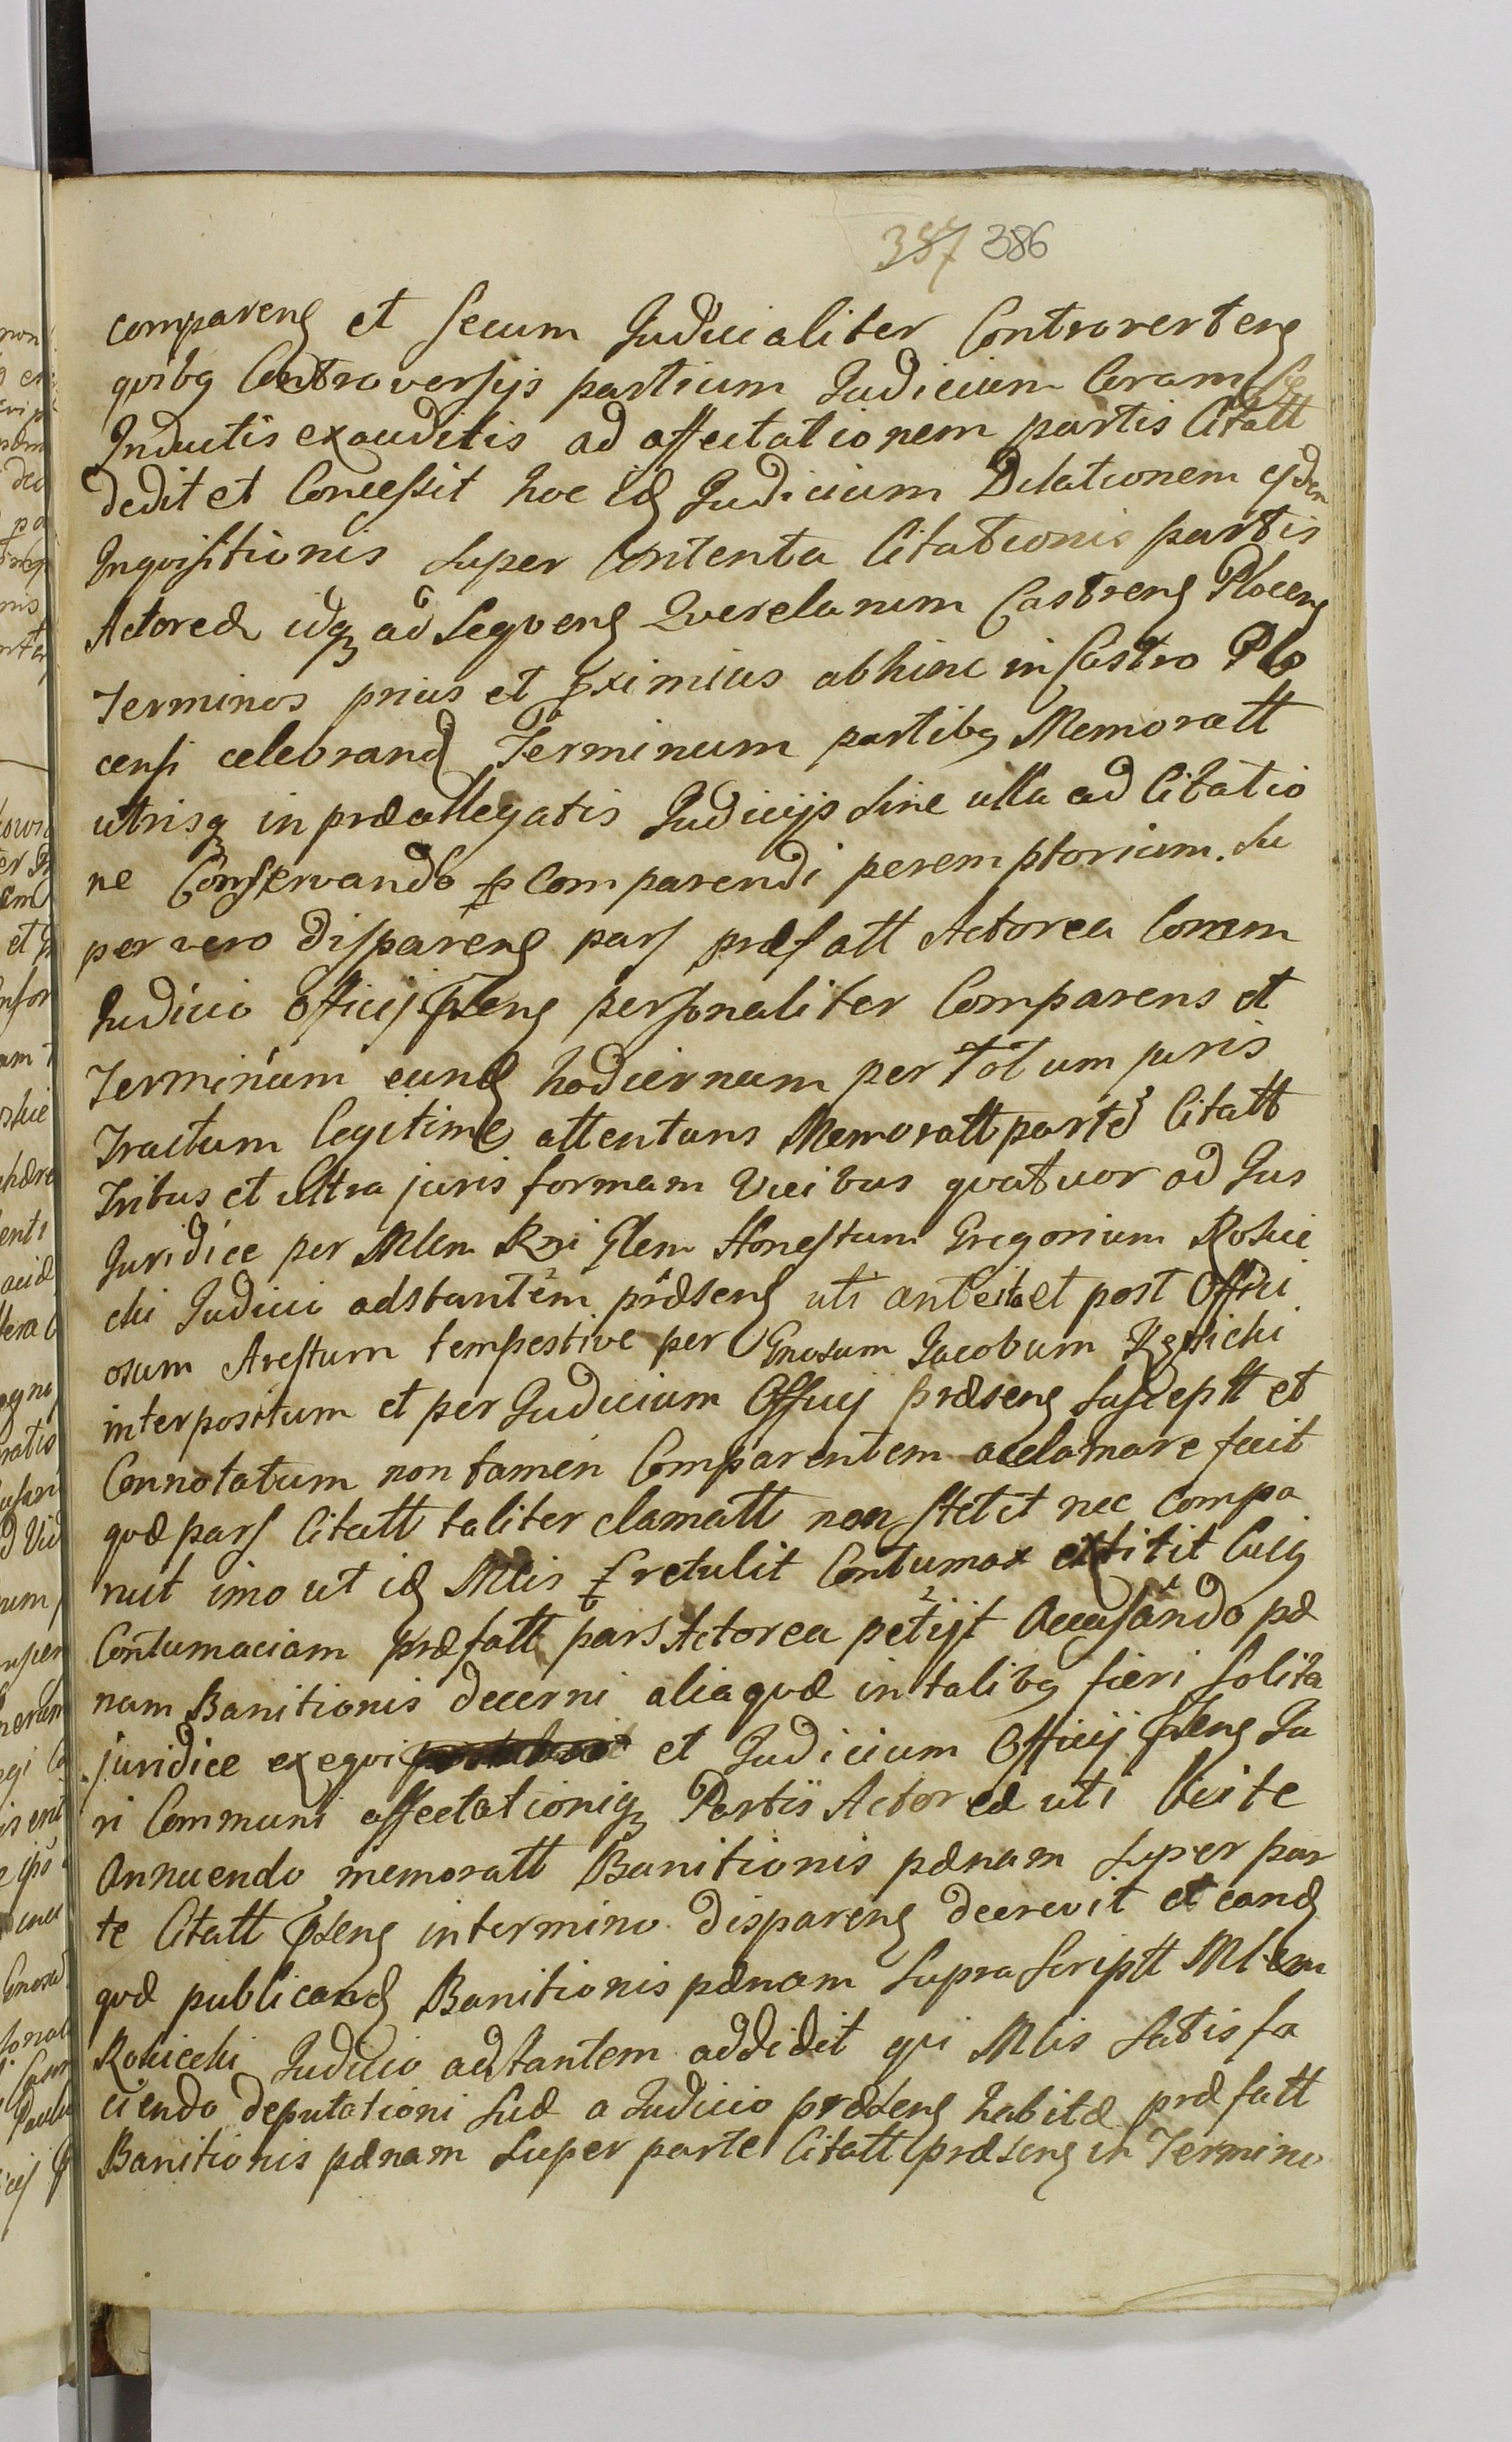 387 386
compareng et secum Judicialiter Controverteng
qvibg Controversijs partium Judicium Coram se
Inductis exauditis ad affectationem partis Citatt
dedit et Concessit hoc idg Judicium Dilationem ejdem
Inqvisitionis super Contenta Citationis partis
Actoreæ idq ad seqveng Qverelarum Castreng Ploceng
Terminos prius et pximius abhinc in Castro Plo
censi celebrandg Terminum partibg Memoratt
utrisq in præallegatis Judicijs sine ulla ad Citatio
ne Conservando p Comparendi peremptorium. Su
per vero dispareng pars præfatt Actorea Coram
Judicio Officij pseng personaliter Comparens et
Terminum eundg hodiernum per totum juris
Tractum legitime attentans Memoratt parte Citatt
Tribus et ultra juris formam Vicibus qvatuor ad Jus
Juridice per Mlem Rni Glem Honestum Gregorium Rosic
cki Judicii adstantem præseng uti antea et post Offici
osum Arestum tempestive per Gnosum Jacobum
interpositum et per Judicium Officij præseng Susceptt et
Connotatum non tamen Comparentem acclamare fecit
qvæ pars Citatt taliter clamatt non stetit nec Compa
ruit imo ut idg Mlis retulit Contumax extitit Cuig
Contumaciam præfatt pars Actorea petijt Accusando pæ
nam Banitionis decerni aliaqvæ in talibg fieri solita
juridice exeqvi et Judicium Officij pseng Ju
ri Communi affectationiq Partis Actoreæ uti licite
Annuendo memoratt Banitionis pænam super par
te Citatt pseng in termino dispareng decrevit et eandg
qvæ publicandg Banitionis pænam supra scriptt Mlem
Rosiccki Judicio adstantem addidit qvi Mlis satisfa
ciendo deputationi suæ a Judicio præseng habitæ præfatt
Banitionis pænam super parte Citatt præseng in Termino